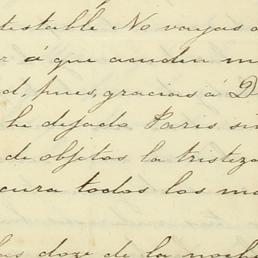 testable No vayas a
r á que acuden m
d, pues, gracias á D
he dejado Paris sin
de objetos la tristeza
cura todos los ma
las doze de la noche